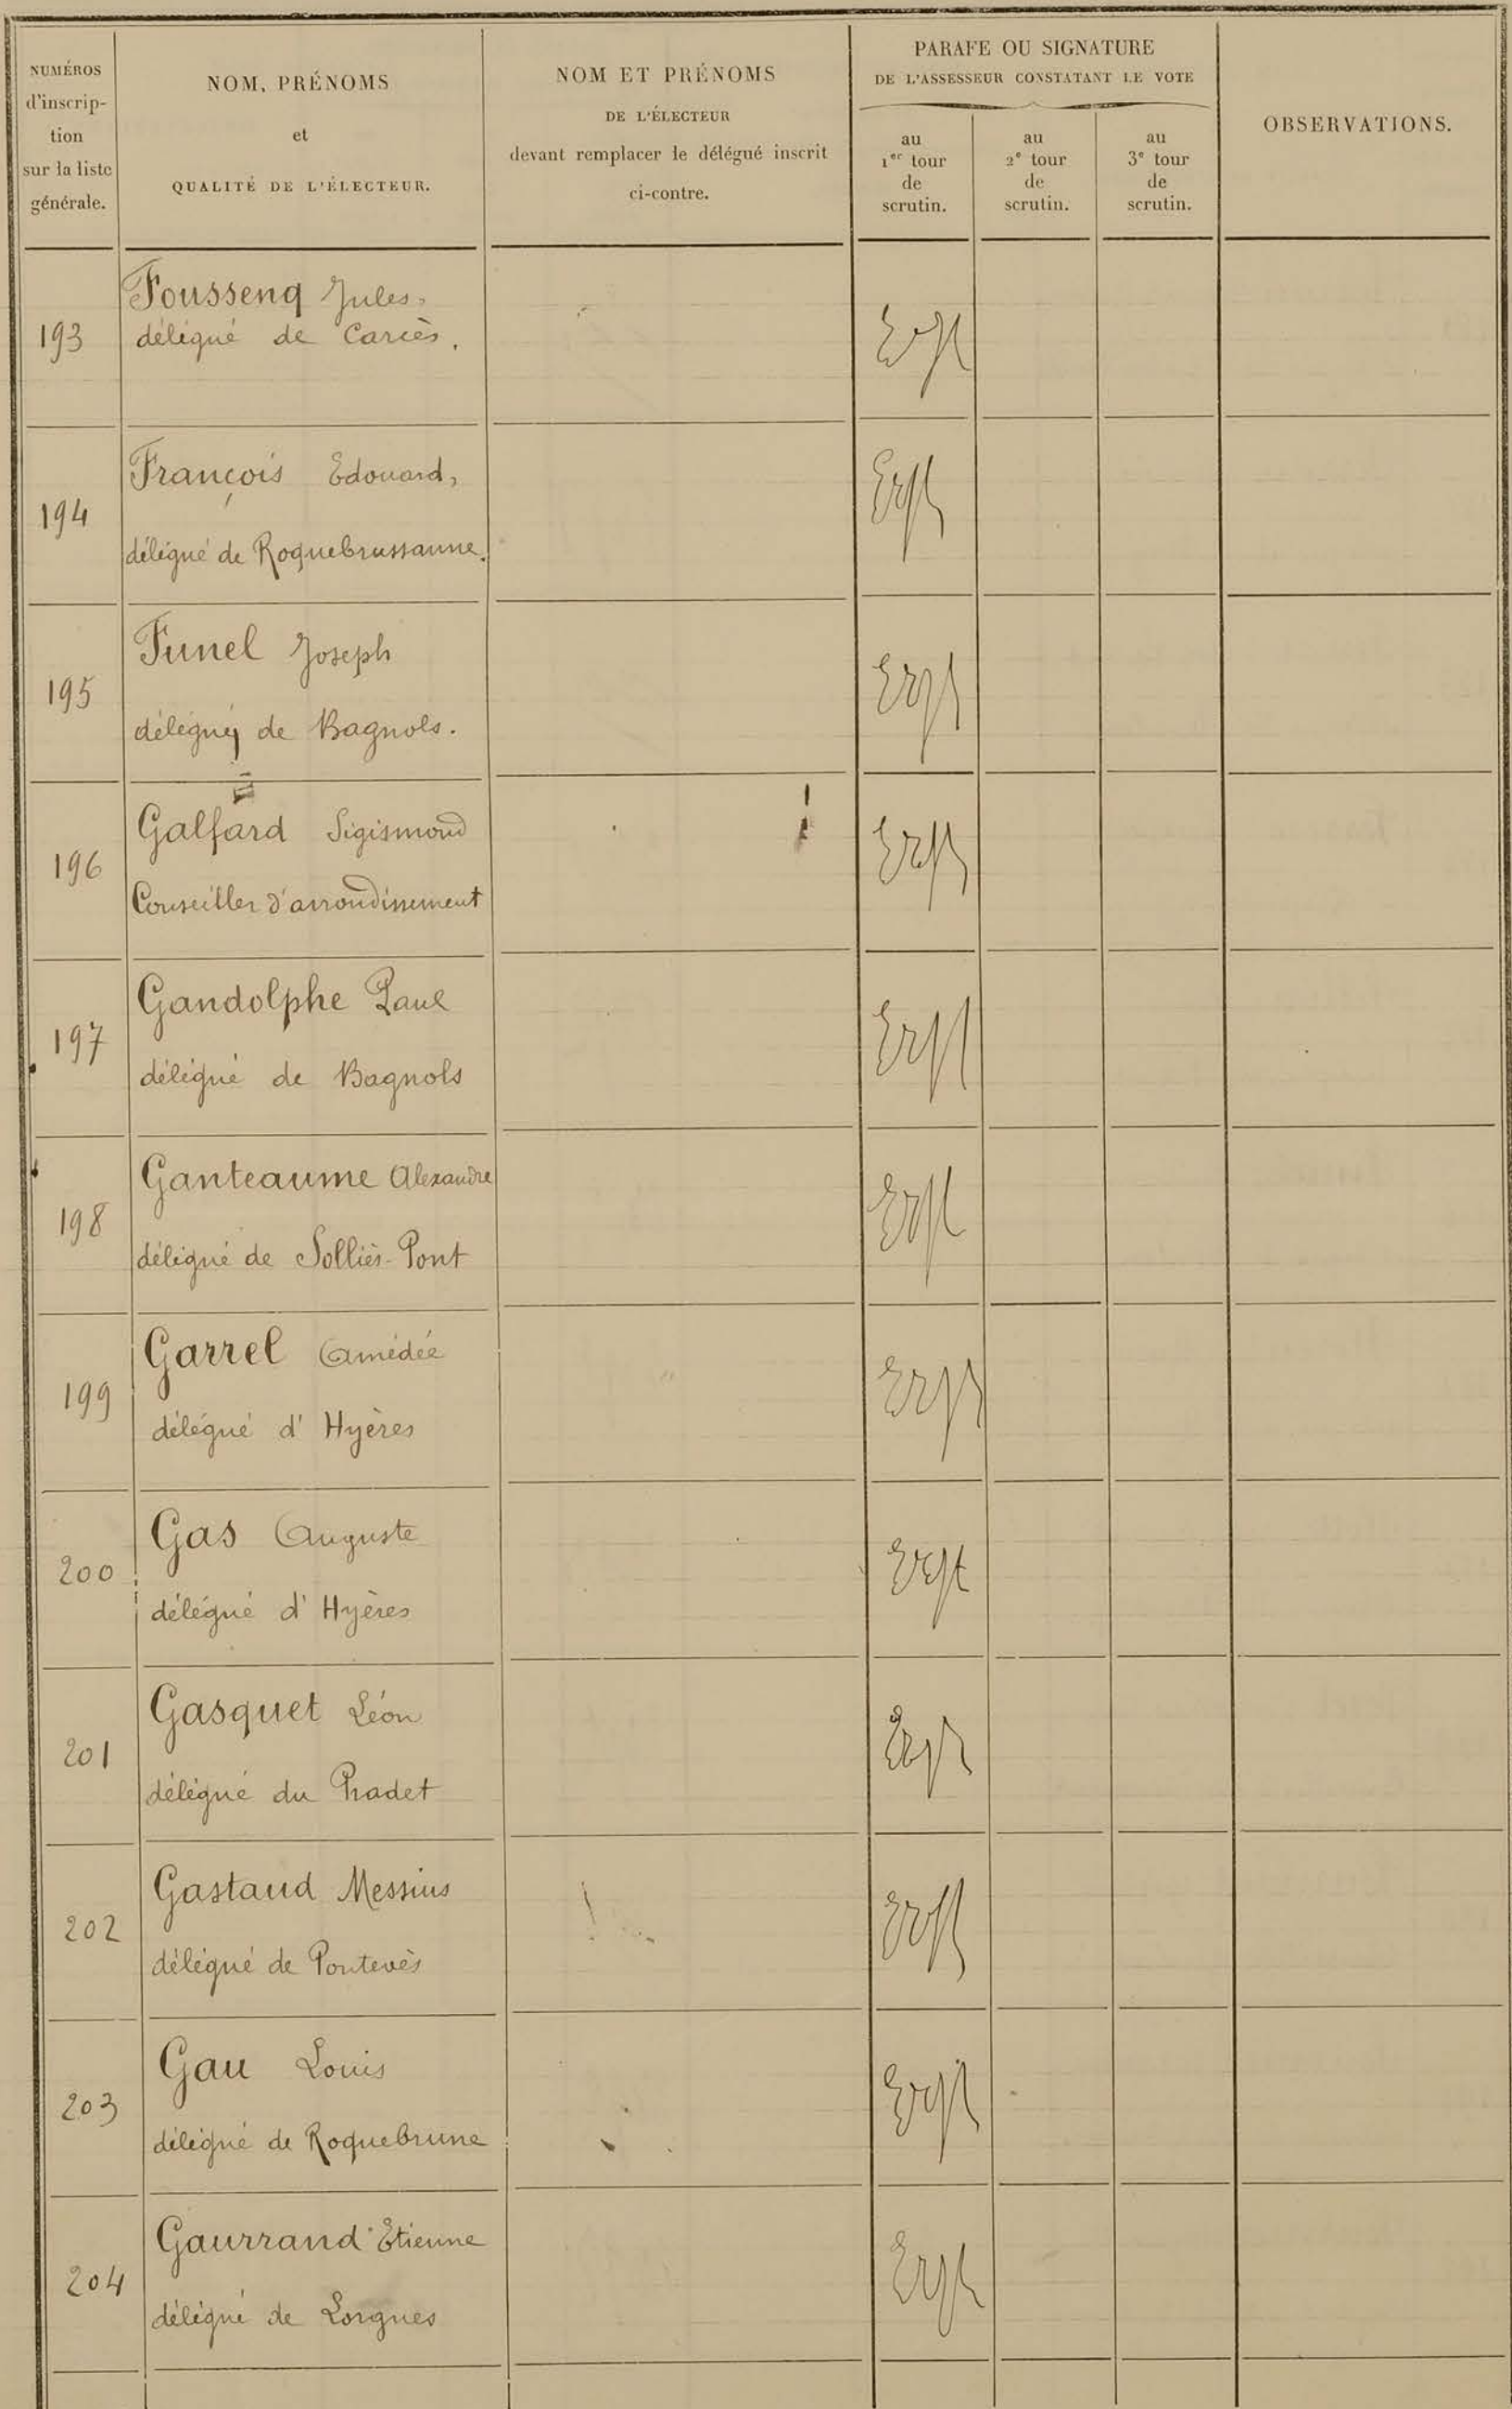 NUMÉROS
d'inscrip-
tion
sur la liste
générale.
NOM, PRÉNOMS
et
QUALITÉ DE L'ÉLECTEUR.
NOM ET PRÉNOMS
DE L'ÉLECTEUR
devant remplacer le délégué inscrit
ci-contre.
PARAFE OU SIGNATURE
DE L'ASSESSEUR CONSTATANT LE VOTE
au
1er tour
de
scrutin.
au
2e tour
de
scrutin.
au
3e tour
de
scrutin.
OBSERVATIONS.
193
Foussenq Jules,
délégué de Carcès.
194
François Edouard,
délégué de Roquebrussanne.
195
Funel Joseph
délégué de Bagnols.
196
Galfard Sigismond
Conseiller d'arrondissement
197
Gandolphe Paul
délégué de Bagnols
198
Ganteaume Alexandre
délégué de Solliès-Pont
199
Garrel Amédée
délégué d'Hyères
200
Gas Auguste
délégué d'Hyères
201
Gasquet Léon
délégué du Pradet
202
Gastaud Messius
délégué de Pontevès
203
Gau Louis
délégué de Roquebrune
204
Gaurrand Etienne
délégué de Lorgues